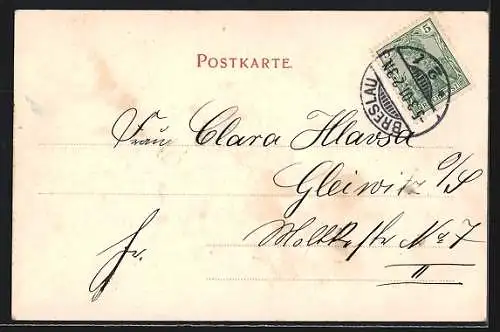 POSTKARTE.
5
BRESLAU
Frau Clara Hlavsa
Gleiwitz O/S
Moltkestr No 7
II
fr.